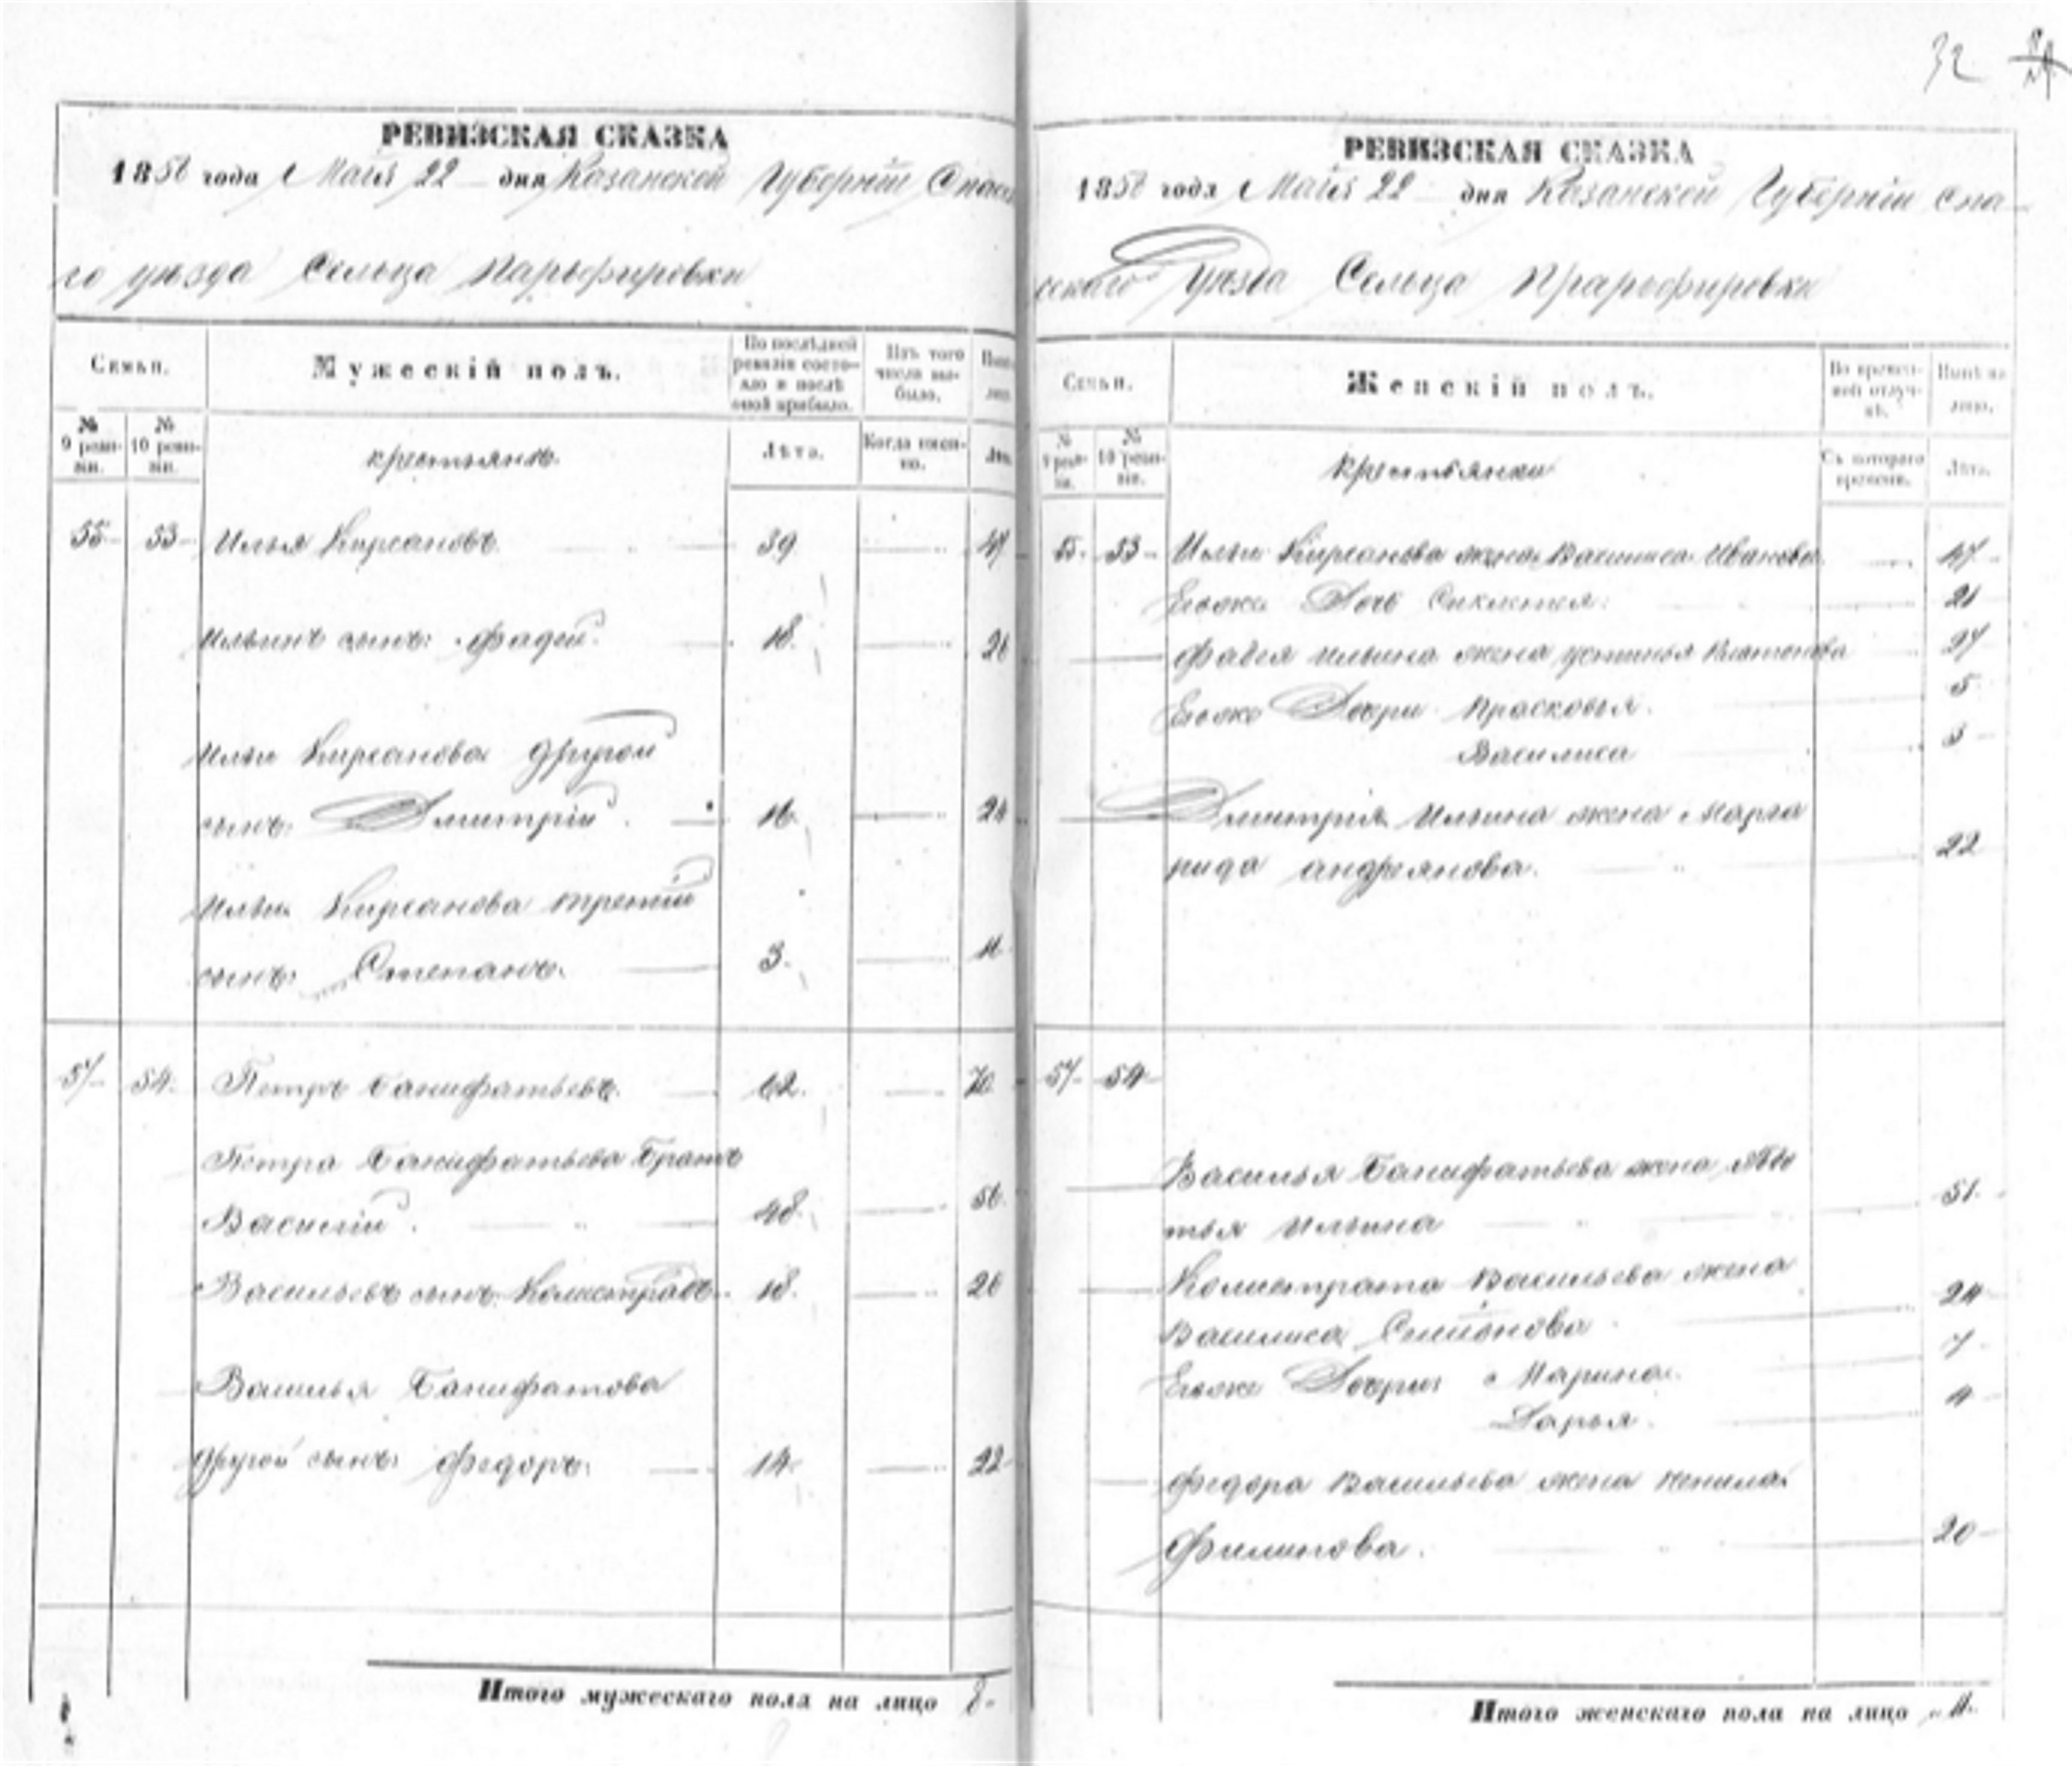 32
РЕВИЗСКАЯ СКАЗКА
1856 года Маія 22 дня Казанской Губерніи Спасс
го уѣзда Сельца Парьфировки
Семьи.
Мужескій полъ.
По послѣдней ревизіи состояло и послѣ оной прибыло.
Изъ того числа выбыло.
№ 9 ревизіи.
№ 10 ревизіи.
крестьянъ
Лѣта.
Когда именно.
55 53 Илья Кирсановъ 39 47
Ильинъ сынъ: Фадей 18 26
Ильи Кирсанова другой
сынъ Дмитрій 16 24
Ильи Кирсанова третій
сынъ Степанъ 3 11
57 54 Петръ Банифатьевъ 62 70
Петра Банифатьева братъ
Василій 48 56
Васильевъ сынъ Калистратъ 18 26
Василья Банифатова
другой сынъ Федоръ 14 22
Итого мужескаго пола на лицо 8
РЕВИЗСКАЯ СКАЗКА
1856 года Маія 22 дня Казанской Губерніи Спа-
сскаго Уѣзда Сельца Прарьфировки
Семьи.
Женскій полъ.
Во временной отлучкѣ.
Нынѣ на лицо.
№ 9 ревизіи.
№ 10 ревизіи.
крестьянки
Съ котораго времени.
Лѣта.
55 53 Ильи Кирсанова жена Василиса Иванова 47
Егоже Дочь 21
Фадея Ильина жена Устинья Платонова 27
Егоже Дочри Прасковья 5
Василиса 3
Дмитрія Ильина жена Марга
рида Андреянова 22
57 54
Василья Банифатьева жена
тья Ильина 51
Калистрата Васильева жена
Василиса Симіонова 24
Егоже Дочри Марина 7
Дарья 4
Федора Васильева жена Ненила
Филипова 20
Итого женскаго пола на лицо 11